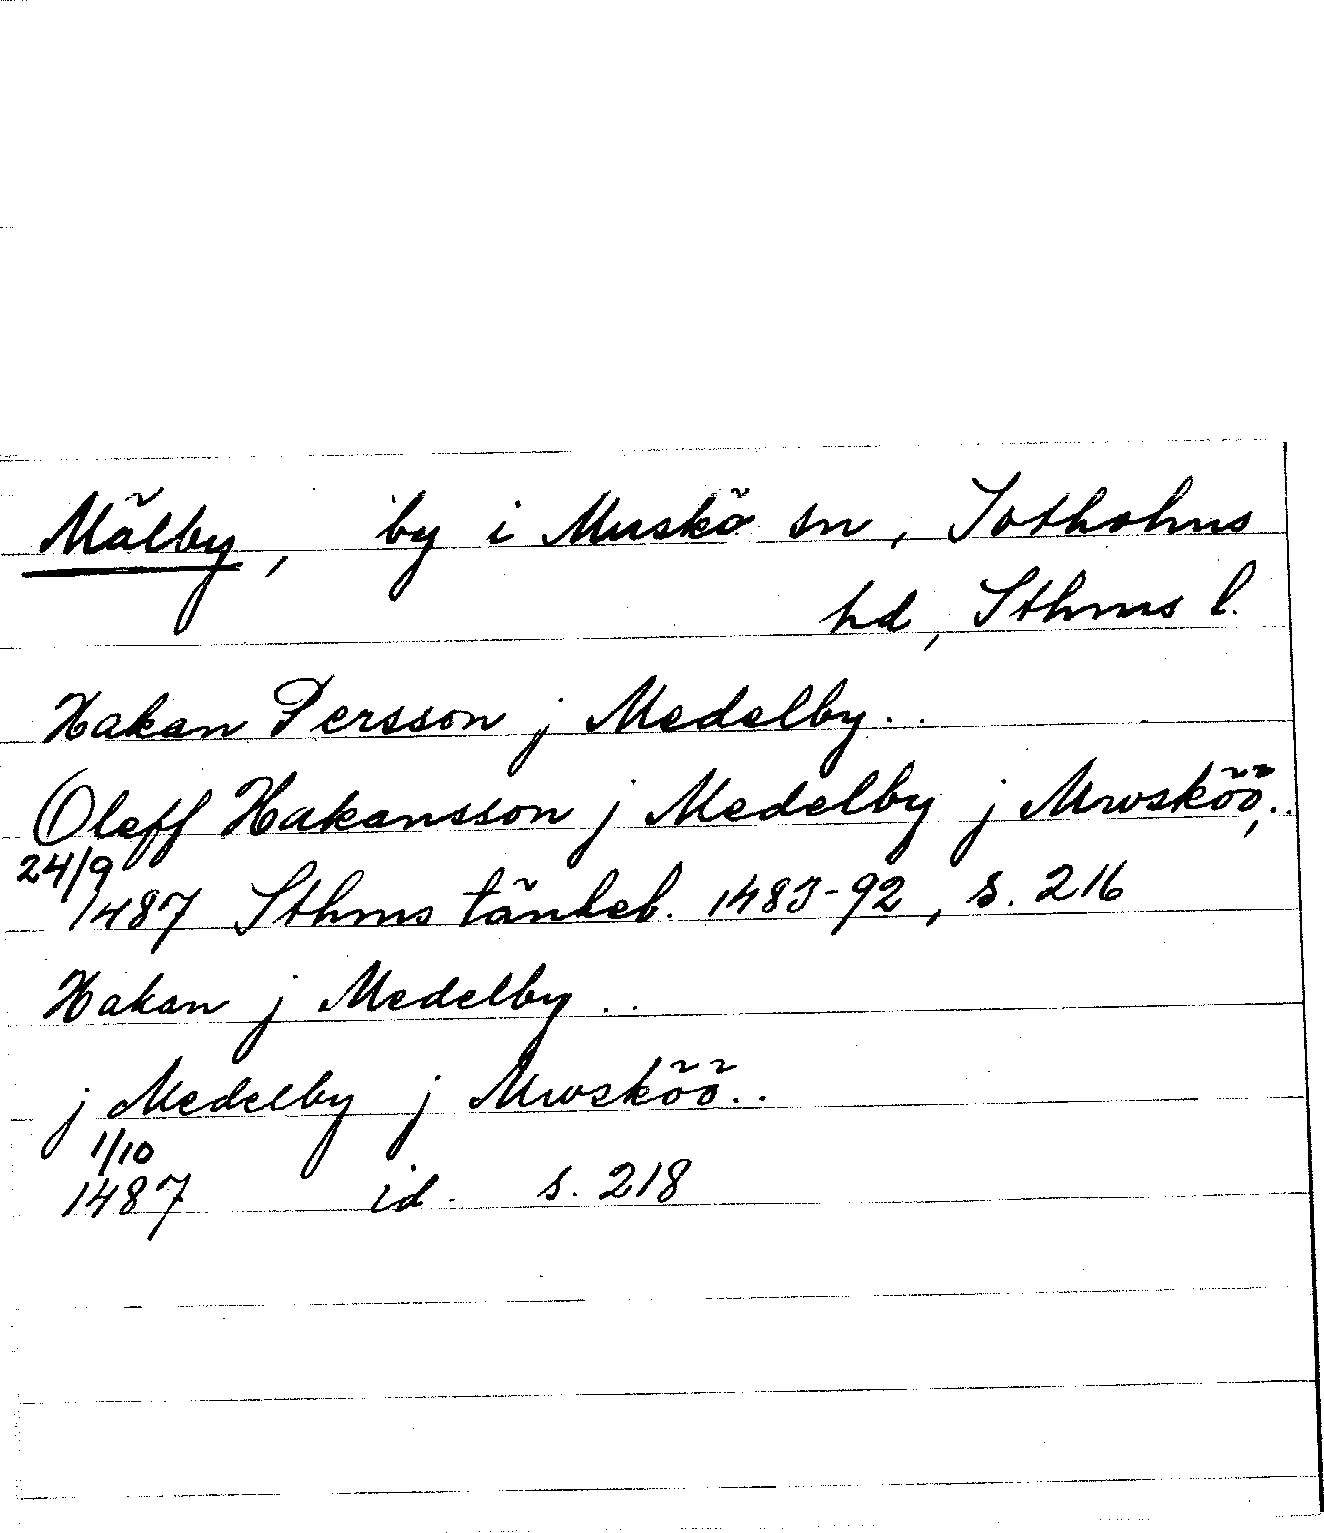 Mälby, by i Muskö sn, Sotholms
hd, Sthms l.
Hakan Persson j Medelby..
Oleff Hakansson j Medelby j Mwsköö,..
24/9
1487 Sthms tänkeb. 1483-92, s. 216
Hakan j Medelby..
j Medelby j Mwsköö..
1/10
1487 id. s. 218